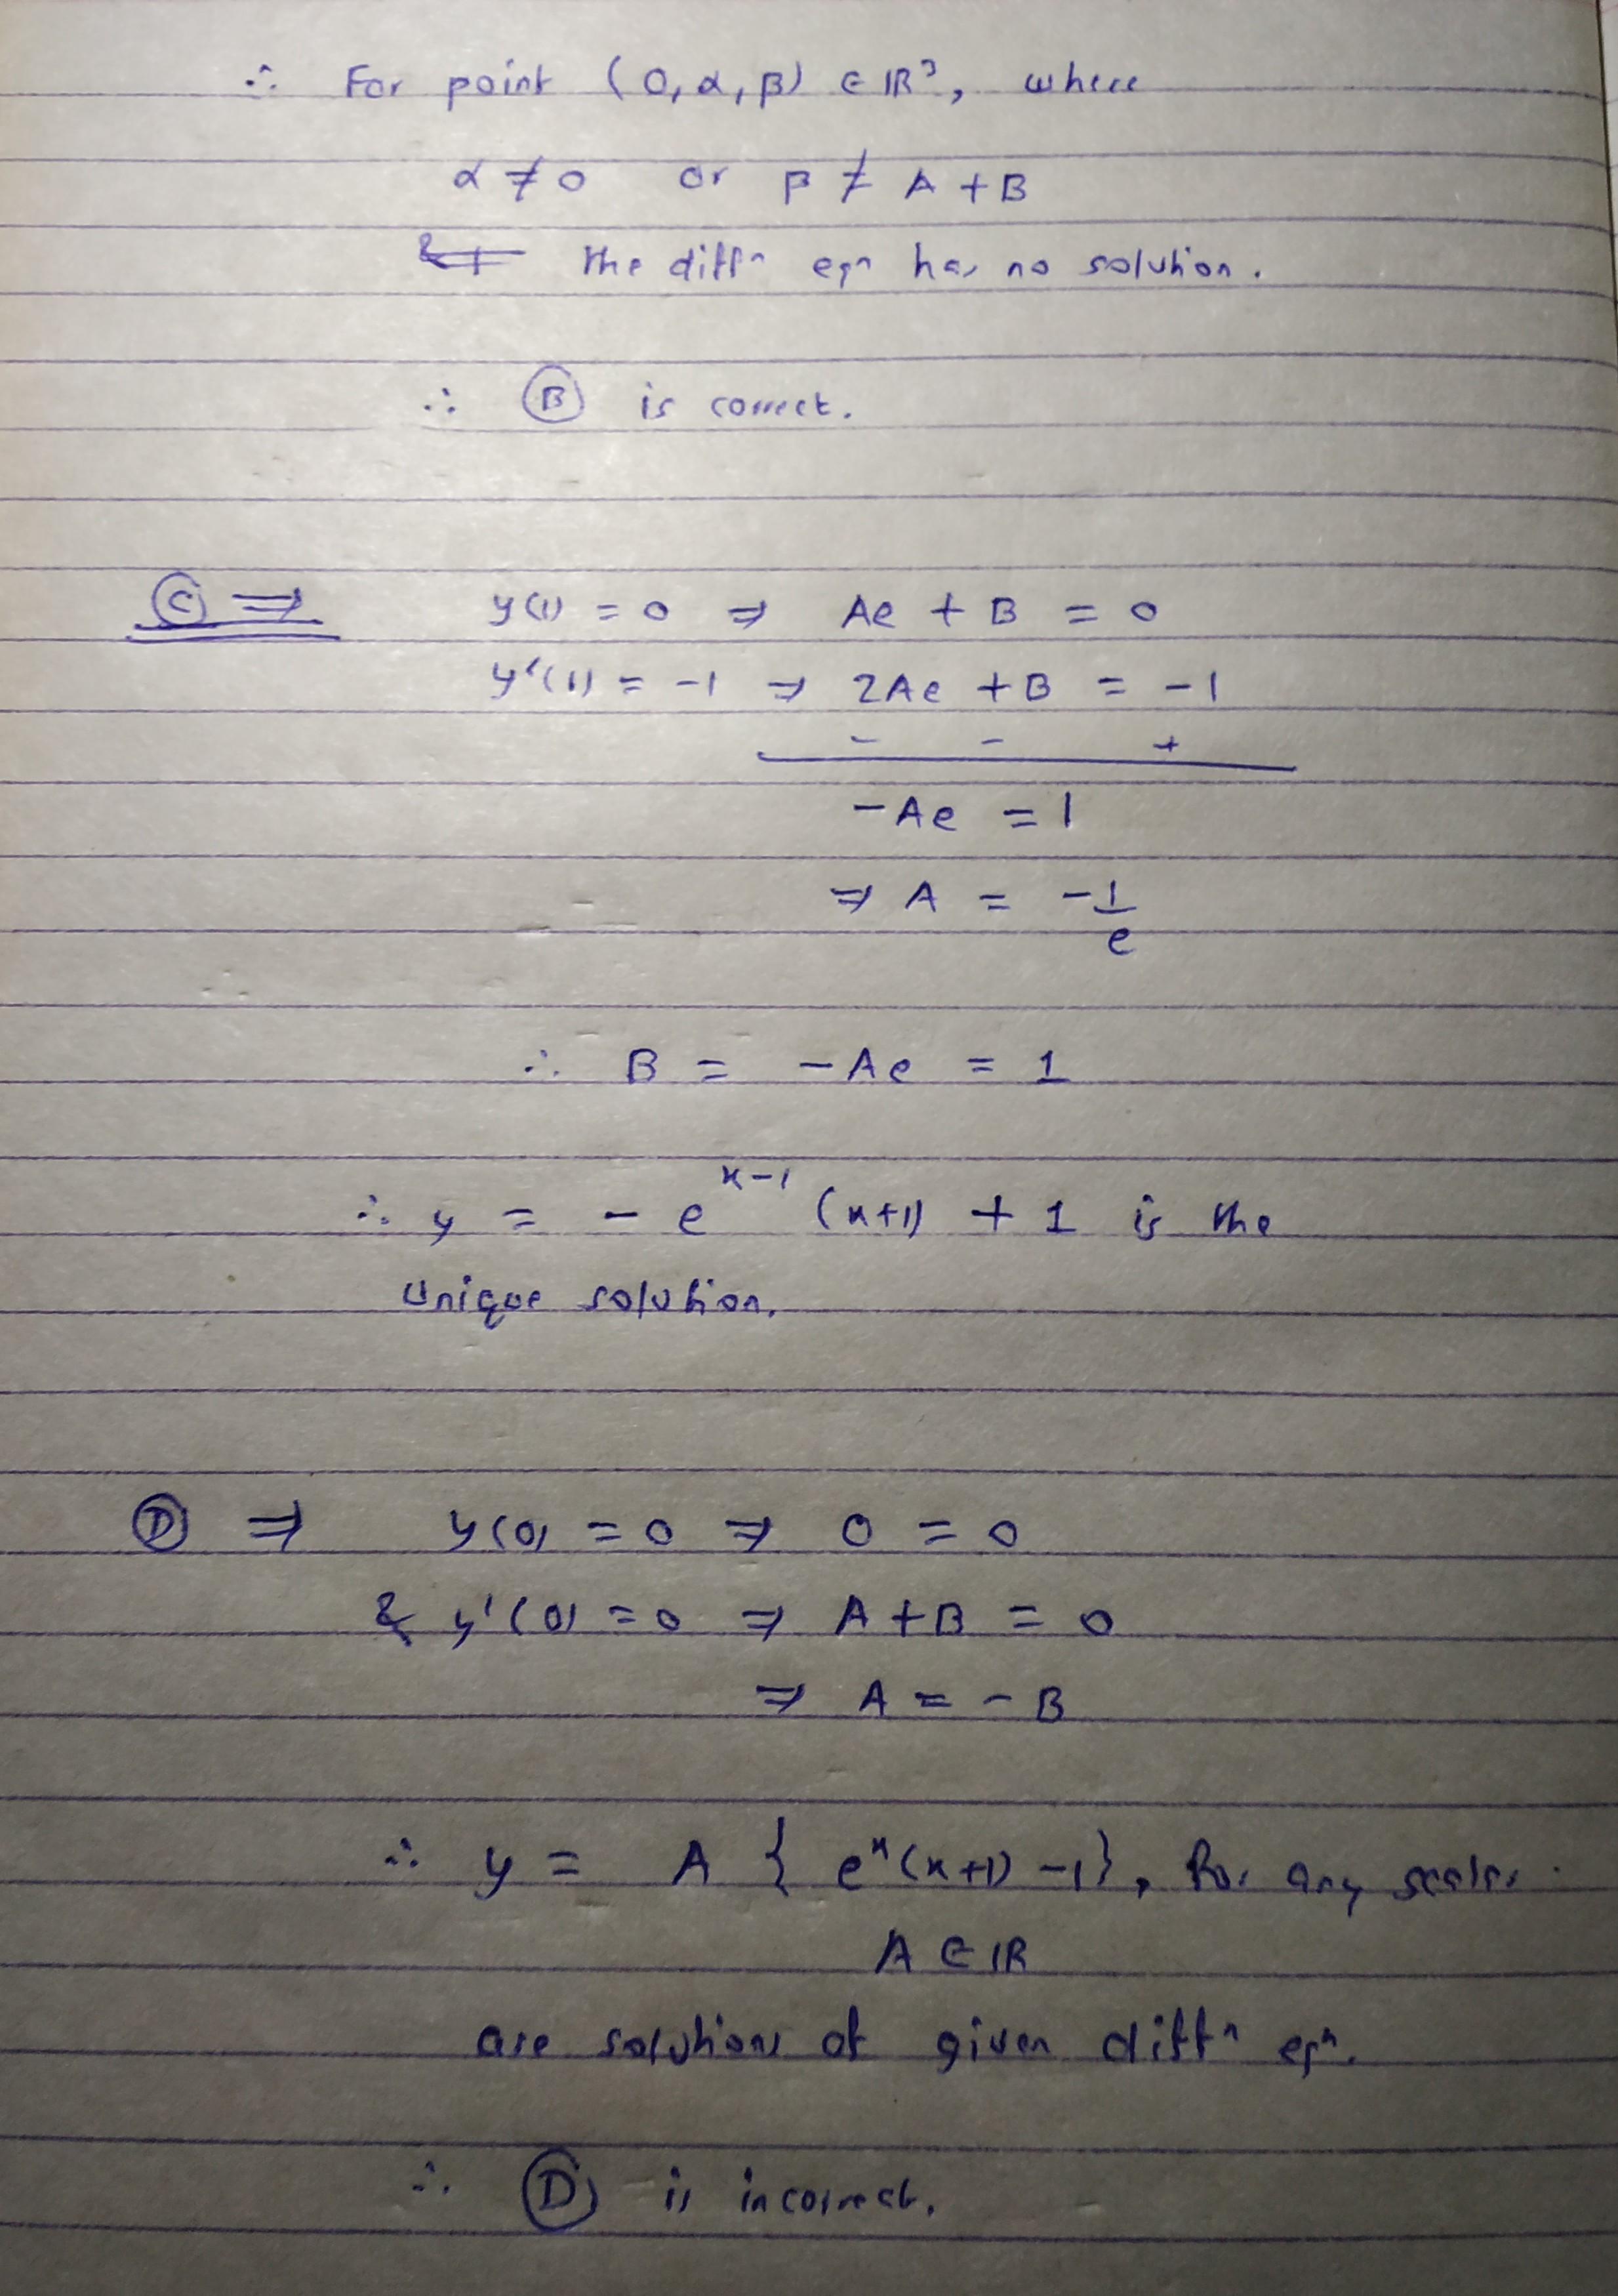 ∴ For point (0, α, β) ∈ IR³, where
α ≠ 0 or β ≠ A + B
& the diffⁿ eqⁿ has no solution.
∴ Ⓑ is correct.
Ⓒ ⇒ y(1) = 0 ⇒ Ae + B = 0
y'(1) = -1 ⇒ 2Ae + B = -1
- - +
-Ae = 1
⇒ A = -1/e
∴ B = -Ae = 1
∴ y = - e^(x-1) (x+1) + 1 is the
unique solution.
Ⓓ ⇒ y(0) = 0 ⇒ 0 = 0
& y'(0) = 0 ⇒ A + B = 0
⇒ A = - B
∴ y = A { eˣ(x+1) -1}, for any scalar
A ∈ IR
are solutions of given diffⁿ eqⁿ.
∴ Ⓓ is incorrect.